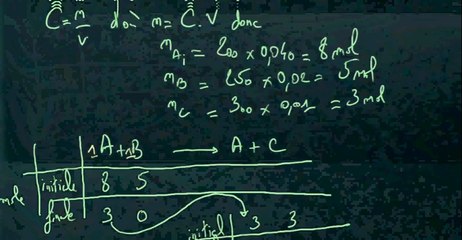 C = n/V donc n = C.V donc
nAi = 200 × 0,040 = 8 mol
nB = 250 × 0,02 = 5 mol
nC = 300 × 0,01 = 3 mol
1A + 1B → A + C
mole initiale 8 5
finale 3 0
initial 3 3